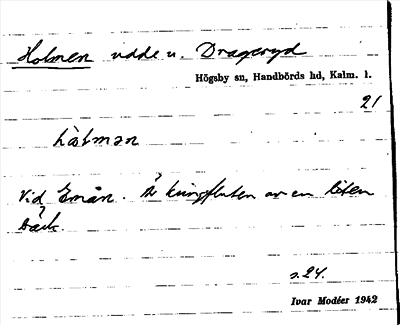 Holmen udde u. Drageryd
Högsby sn, Handbörds hd, Kalm. l.
21
hòlmən
Vid Emån. Är kringfluten av en liten
bäck
s. 24.
Ivar Modéer 1942